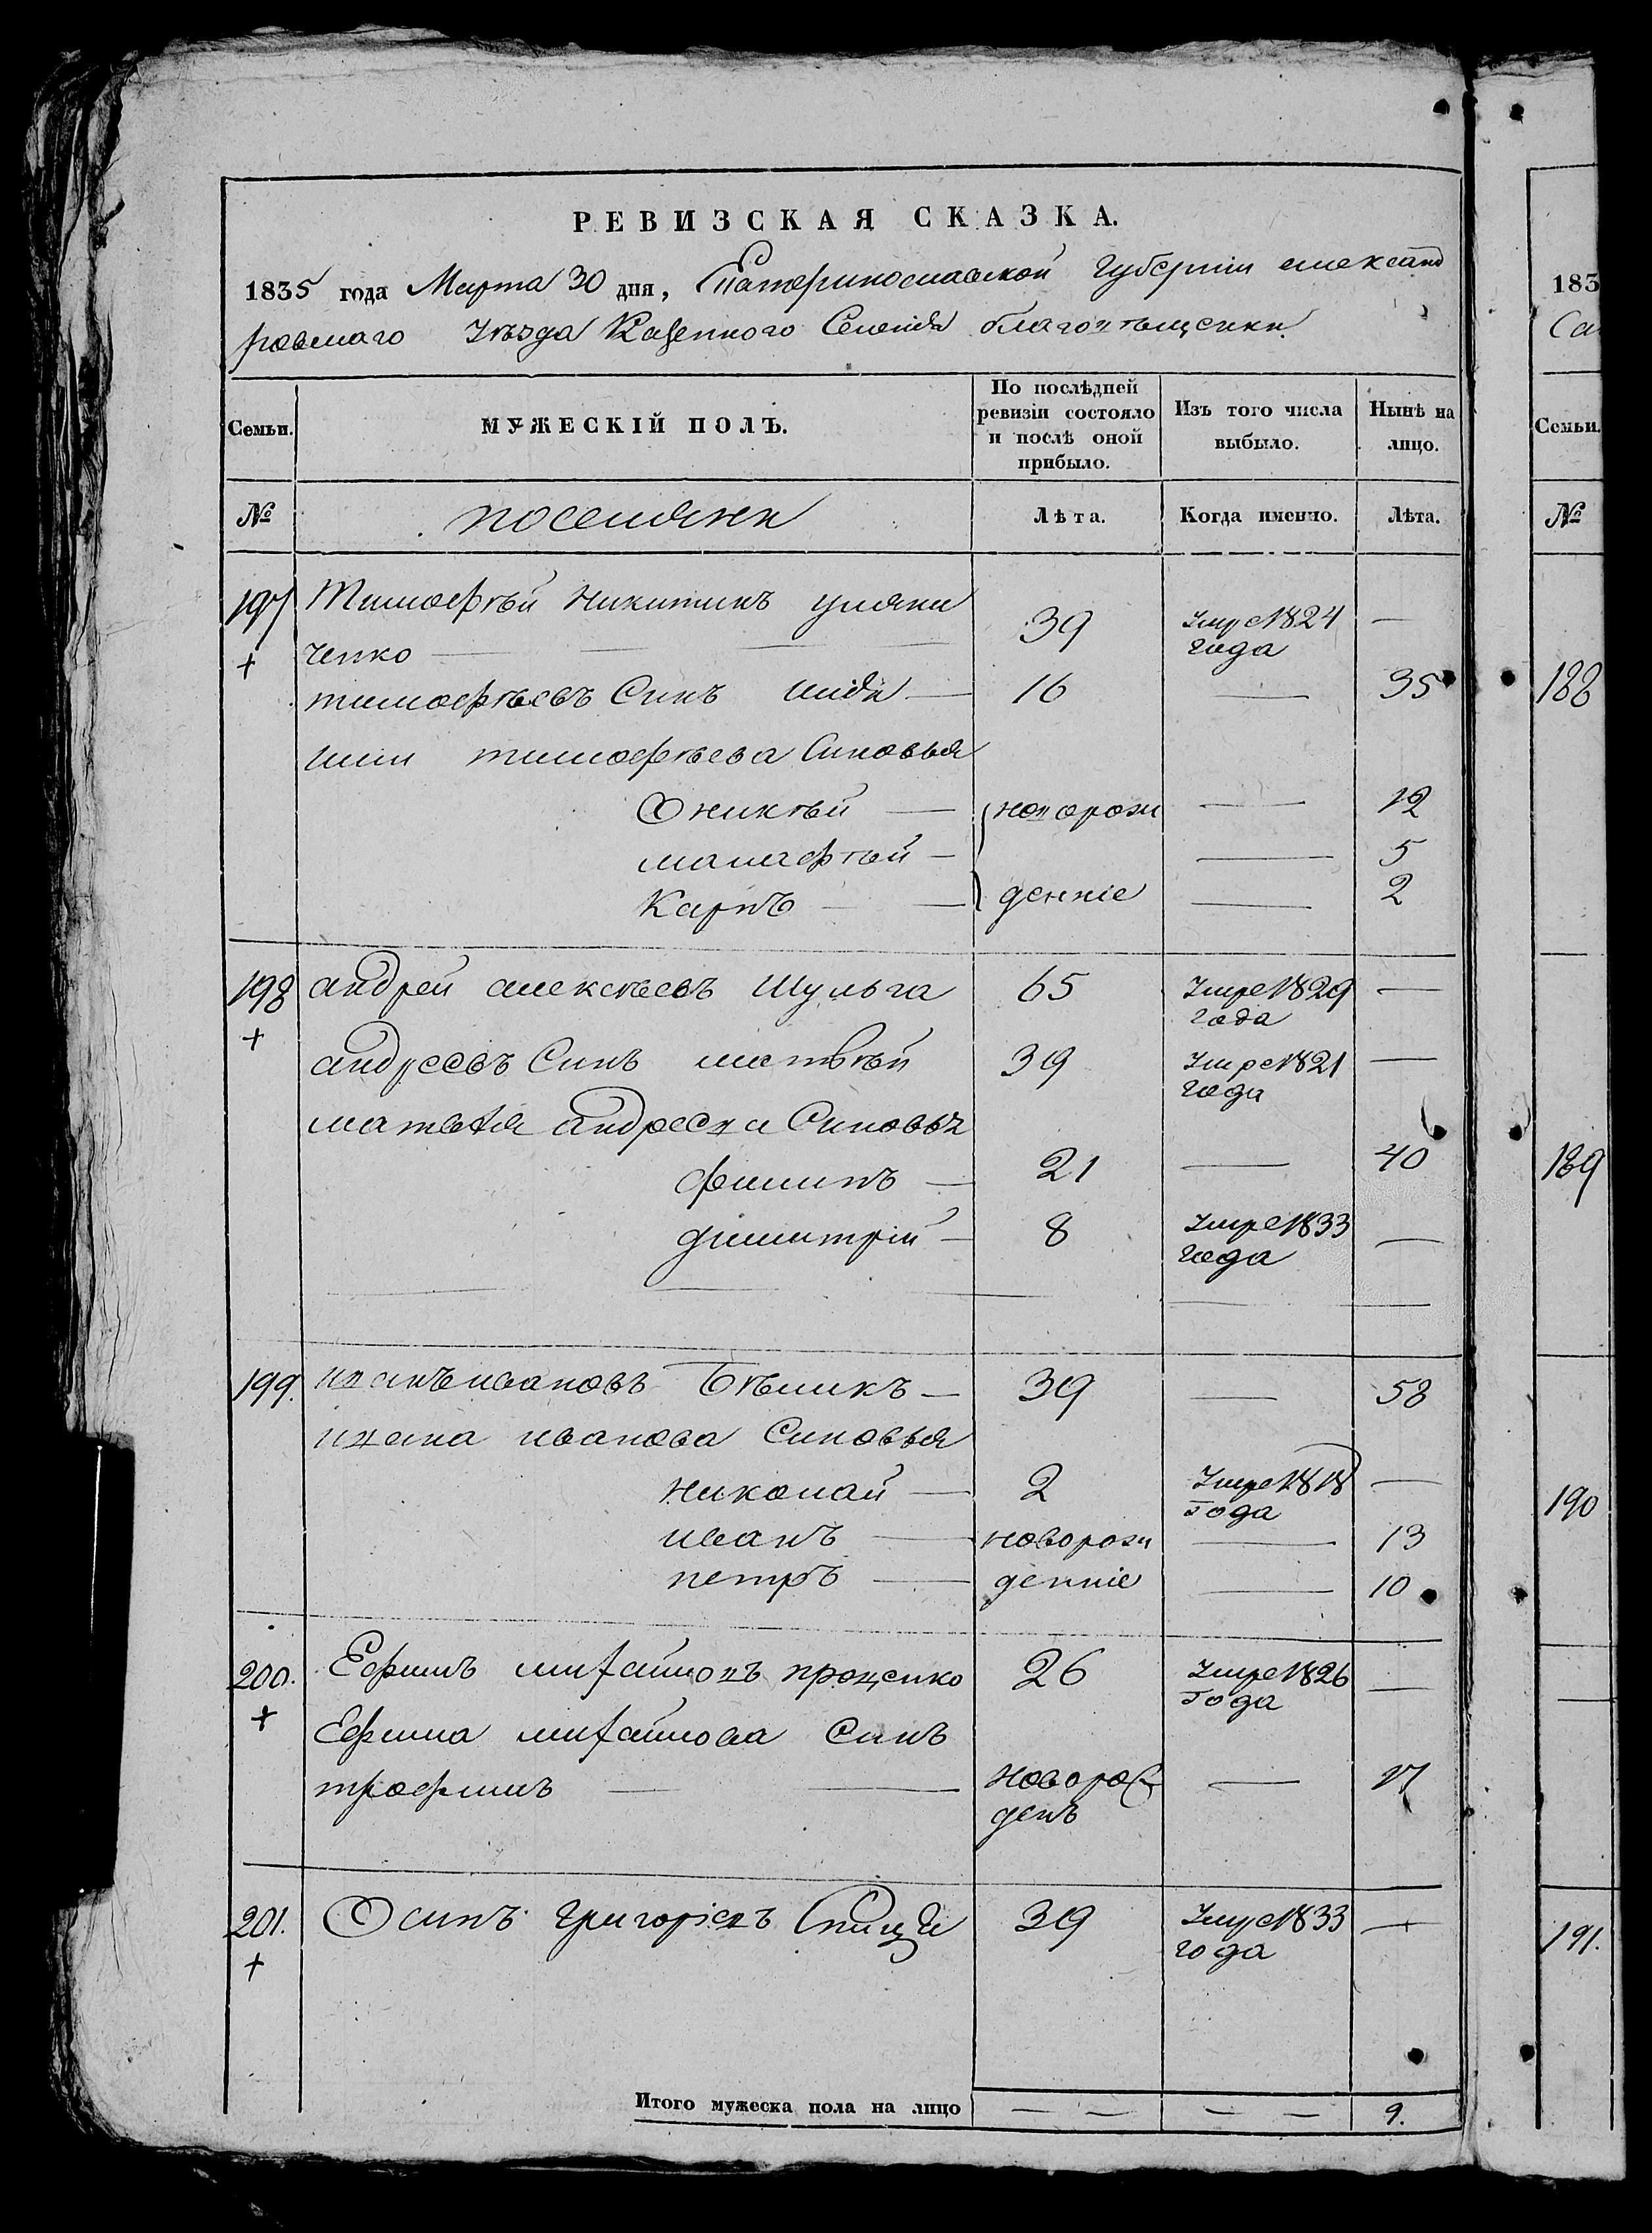 РЕВИЗСКАЯ СКАЗКА.
1835 года Марта 30 дня, Екатеринославской Губернии александ
ровскаго Уѣзда Казенного Селения благовѣщенки
Семьи.
МУЖЕСКІЙ ПОЛЪ.
По послѣдней ревизіи состояло и послѣ оной прибыло.
Изъ того числа выбыло.
Нынѣ на лицо.
№
поселяне
Лѣта.
Когда именно.
Лѣта.
197 Тимофѣй Никитинъ уляни
ченко — 39 Умре 1824 года —
+
тимофѣевъ Синъ илія — 16 — 35
тимофѣева Синовья
Оникѣй — новорож — 12
малафѣй — — 5
Карпъ — деніе — 2
198 андрей алексѣевъ Шульга 65 Умре 1829 года —
+
андреевъ Синъ матвѣй 39 Умре 1821 года —
матвѣя андреева Синовья
филипъ — 21 — 40
димитрій — 8 Умре 1833 года —
199. иванъ ивановъ Бѣликъ — 39 — 58
ивана иванова Синовья
николай — 2 Умре 1818 года —
иванъ — новорож — 13
петръ — деніе — 10
200. Ефимъ михайловъ проценко 26 Умре 1826 года —
+
Ефима михайлова Синъ
трофимъ — новорож — 17
денъ
201. Осипъ григоріевъ Спица 39 Умре 1833 года —
+
Итого мужеска пола на лицо — — — — 9.
183
Семьи.
№
188
189
190
191.